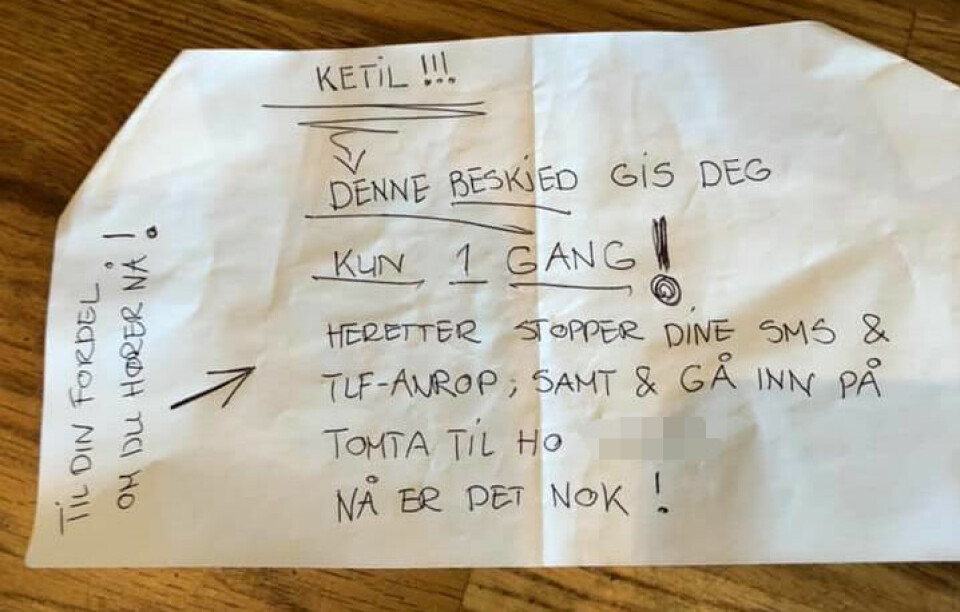 KETIL !!!
DENNE BESKJED GIS DEG
KUN 1 GANG !
HERETTER STOPPER DINE SMS &
TLF-ANROP; SAMT & GÅ INN PÅ
TOMTA TIL HO
NÅ ER DET NOK !
TIL DIN FORDEL,
OM DU HØRER NÅ !